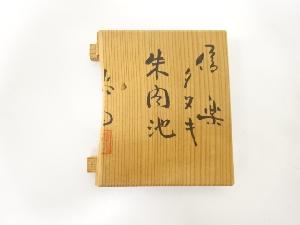 信楽
タヌキ
朱肉池